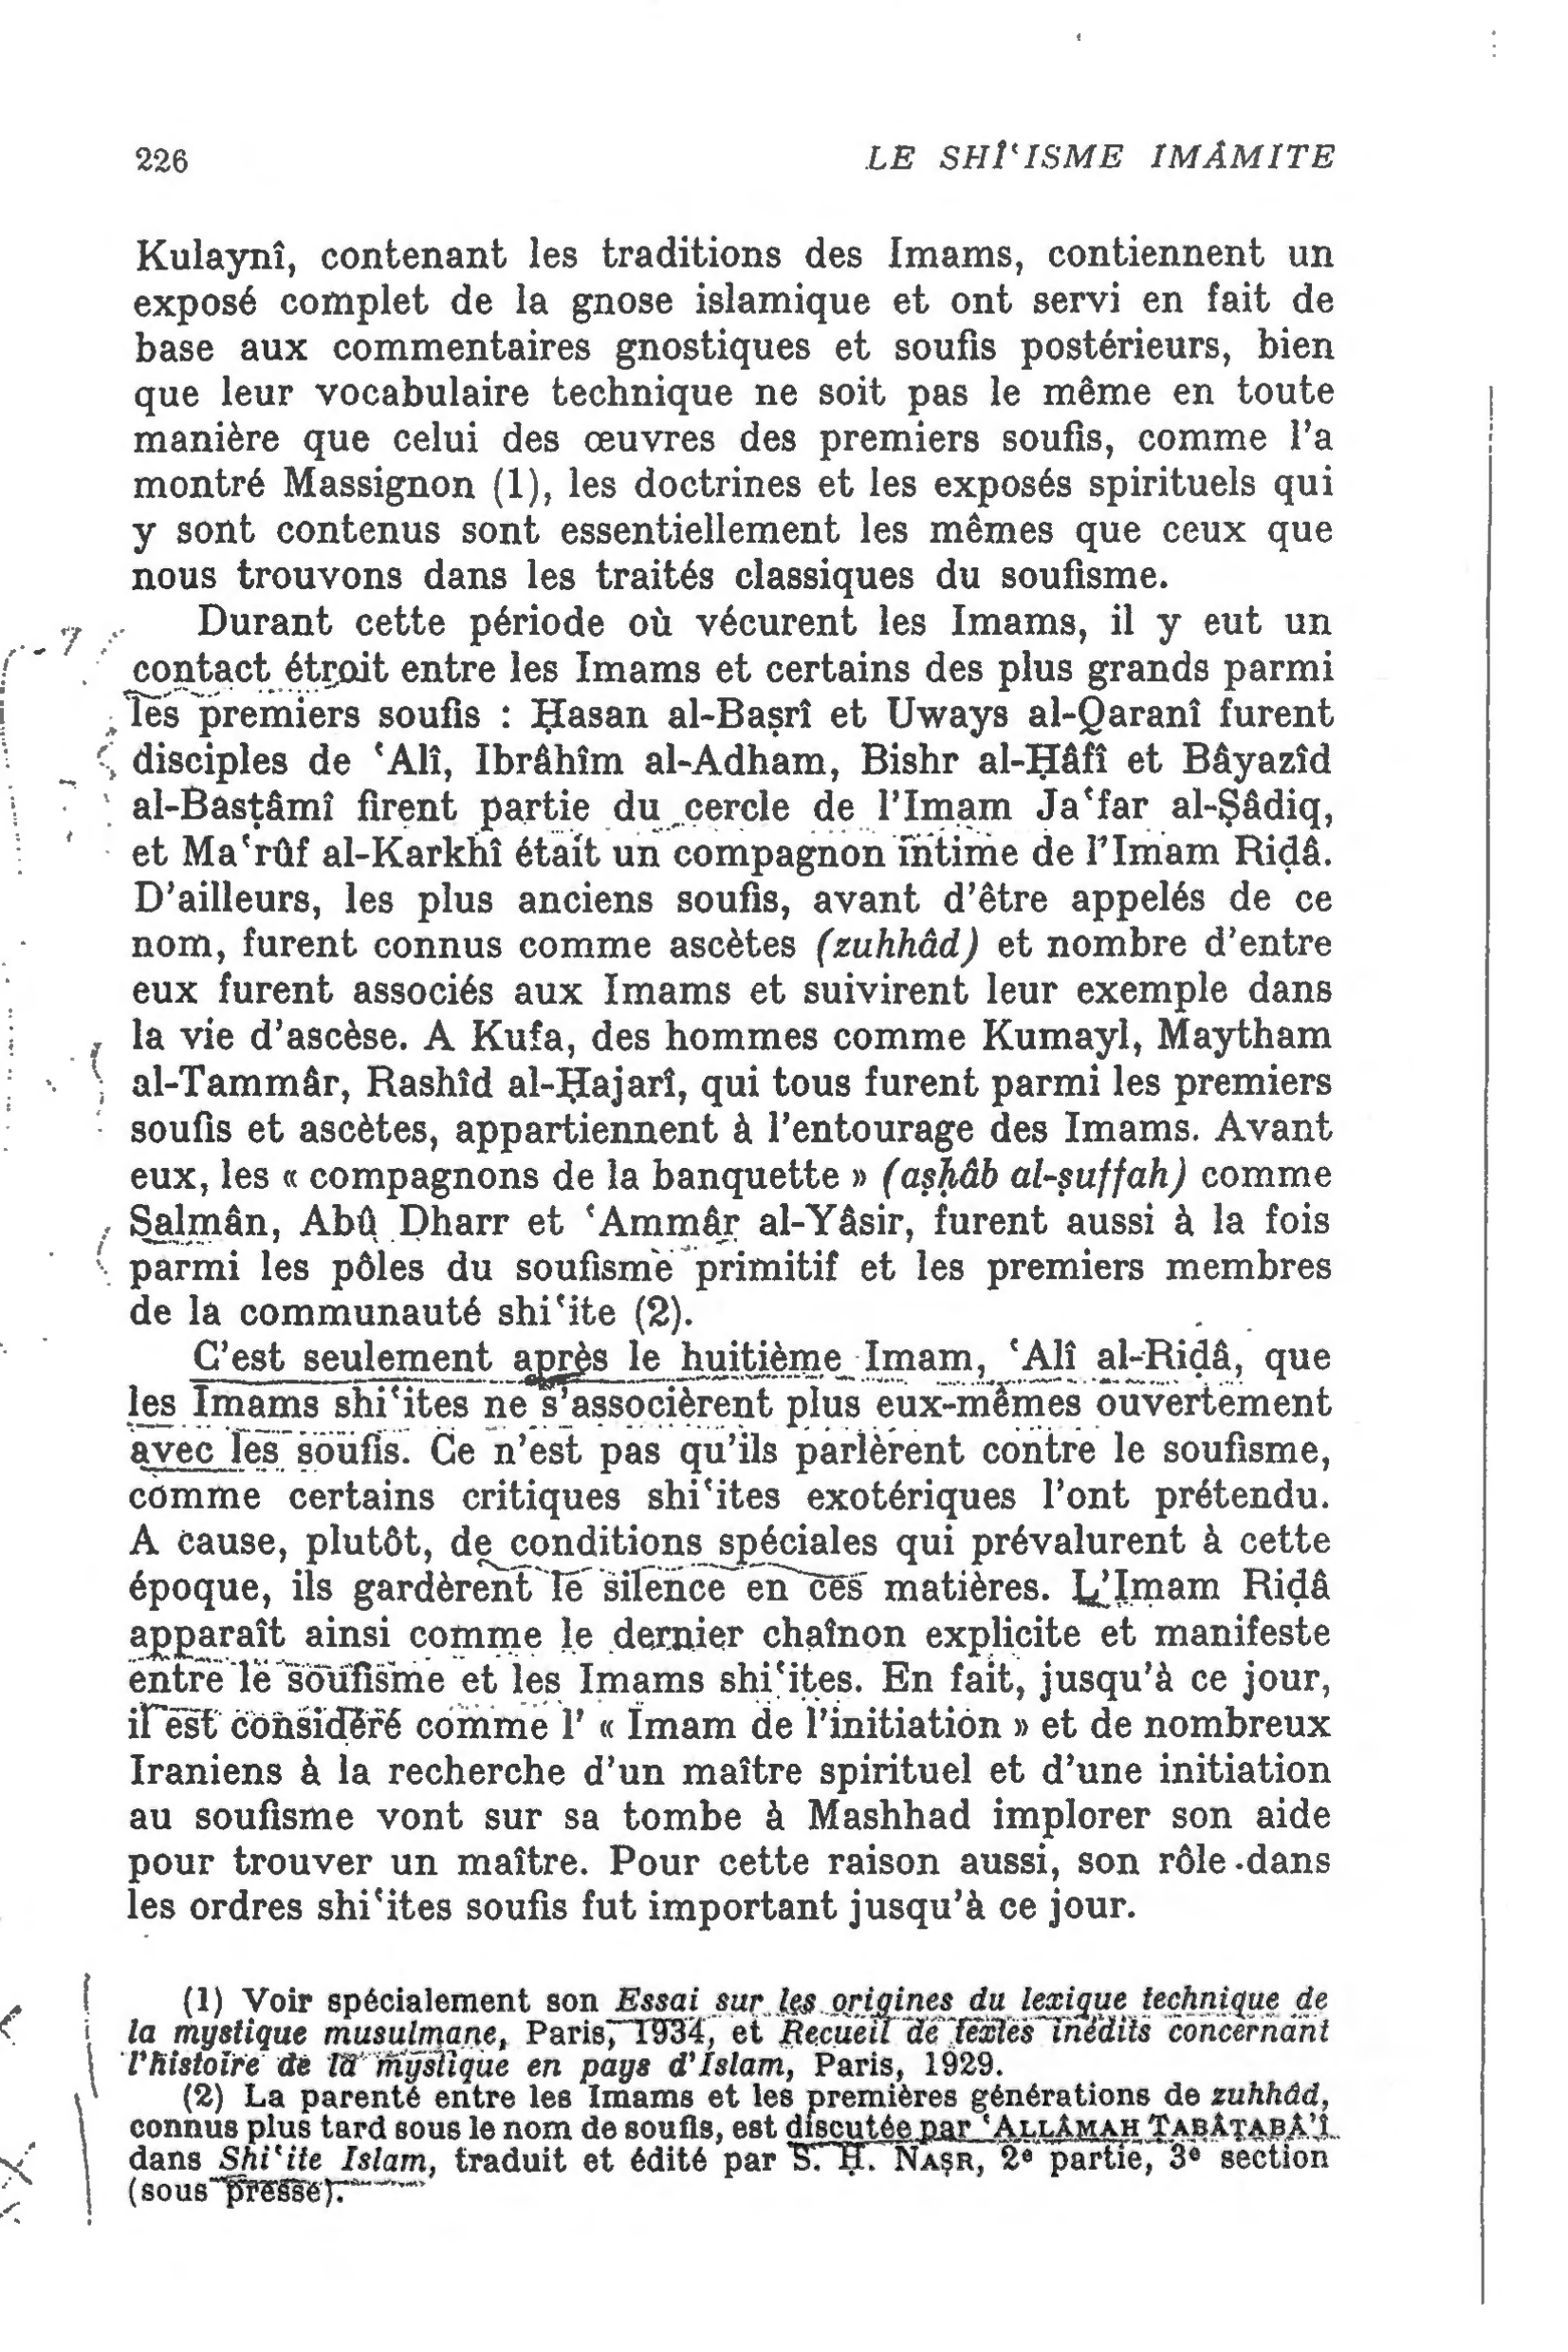 226 LE SHÎ‘ISME IMÂMITE
Kulaynî, contenant les traditions des Imams, contiennent un
exposé complet de la gnose islamique et ont servi en fait de
base aux commentaires gnostiques et soufis postérieurs, bien
que leur vocabulaire technique ne soit pas le même en toute
manière que celui des œuvres des premiers soufis, comme l’a
montré Massignon (1), les doctrines et les exposés spirituels qui
y sont contenus sont essentiellement les mêmes que ceux que
nous trouvons dans les traités classiques du soufisme.
Durant cette période où vécurent les Imams, il y eut un
contact étroit entre les Imams et certains des plus grands parmi
les premiers soufis : Ḥasan al-Baṣrî et Uways al-Qaranî furent
disciples de ‘Alî, Ibrâhîm al-Adham, Bishr al-Ḥâfî et Bâyazîd
al-Basṭâmî firent partie du cercle de l’Imam Ja‘far al-Ṣâdiq,
et Ma‘rûf al-Karkhî était un compagnon intime de l’Imam Riḍâ.
D’ailleurs, les plus anciens soufis, avant d’être appelés de ce
nom, furent connus comme ascètes (zuhhâd) et nombre d’entre
eux furent associés aux Imams et suivirent leur exemple dans
la vie d’ascèse. A Kufa, des hommes comme Kumayl, Maytham
al-Tammâr, Rashîd al-Ḥajarî, qui tous furent parmi les premiers
soufis et ascètes, appartiennent à l’entourage des Imams. Avant
eux, les « compagnons de la banquette » (aṣḥâb al-ṣuffah) comme
Salmân, Abû Dharr et ‘Ammâr al-Yâsir, furent aussi à la fois
parmi les pôles du soufisme primitif et les premiers membres
de la communauté shi‘ite (2).
C’est seulement après le huitième Imam, ‘Alî al-Riḍâ, que
les Imams shi‘ites ne s’associèrent plus eux-mêmes ouvertement
avec les soufis. Ce n’est pas qu’ils parlèrent contre le soufisme,
comme certains critiques shi‘ites exotériques l’ont prétendu.
A cause, plutôt, de conditions spéciales qui prévalurent à cette
époque, ils gardèrent le silence en ces matières. L’Imam Riḍâ
apparaît ainsi comme le dernier chaînon explicite et manifeste
entre le soufisme et les Imams shi‘ites. En fait, jusqu’à ce jour,
il est considéré comme l’ « Imam de l’initiation » et de nombreux
Iraniens à la recherche d’un maître spirituel et d’une initiation
au soufisme vont sur sa tombe à Mashhad implorer son aide
pour trouver un maître. Pour cette raison aussi, son rôle dans
les ordres shi‘ites soufis fut important jusqu’à ce jour.
(1) Voir spécialement son Essai sur les origines du lexique technique de
la mystique musulmane, Paris, 1934, et Recueil de textes inédits concernant
l’histoire de la mystique en pays d’Islam, Paris, 1929.
(2) La parenté entre les Imams et les premières générations de zuhhâd,
connus plus tard sous le nom de soufis, est discutée par ‘ALLÂMAH ṬABÂṬABÂ’Î
dans Shi‘ite Islam, traduit et édité par S. Ḥ. NAṢR, 2e partie, 3e section
(sous presse).